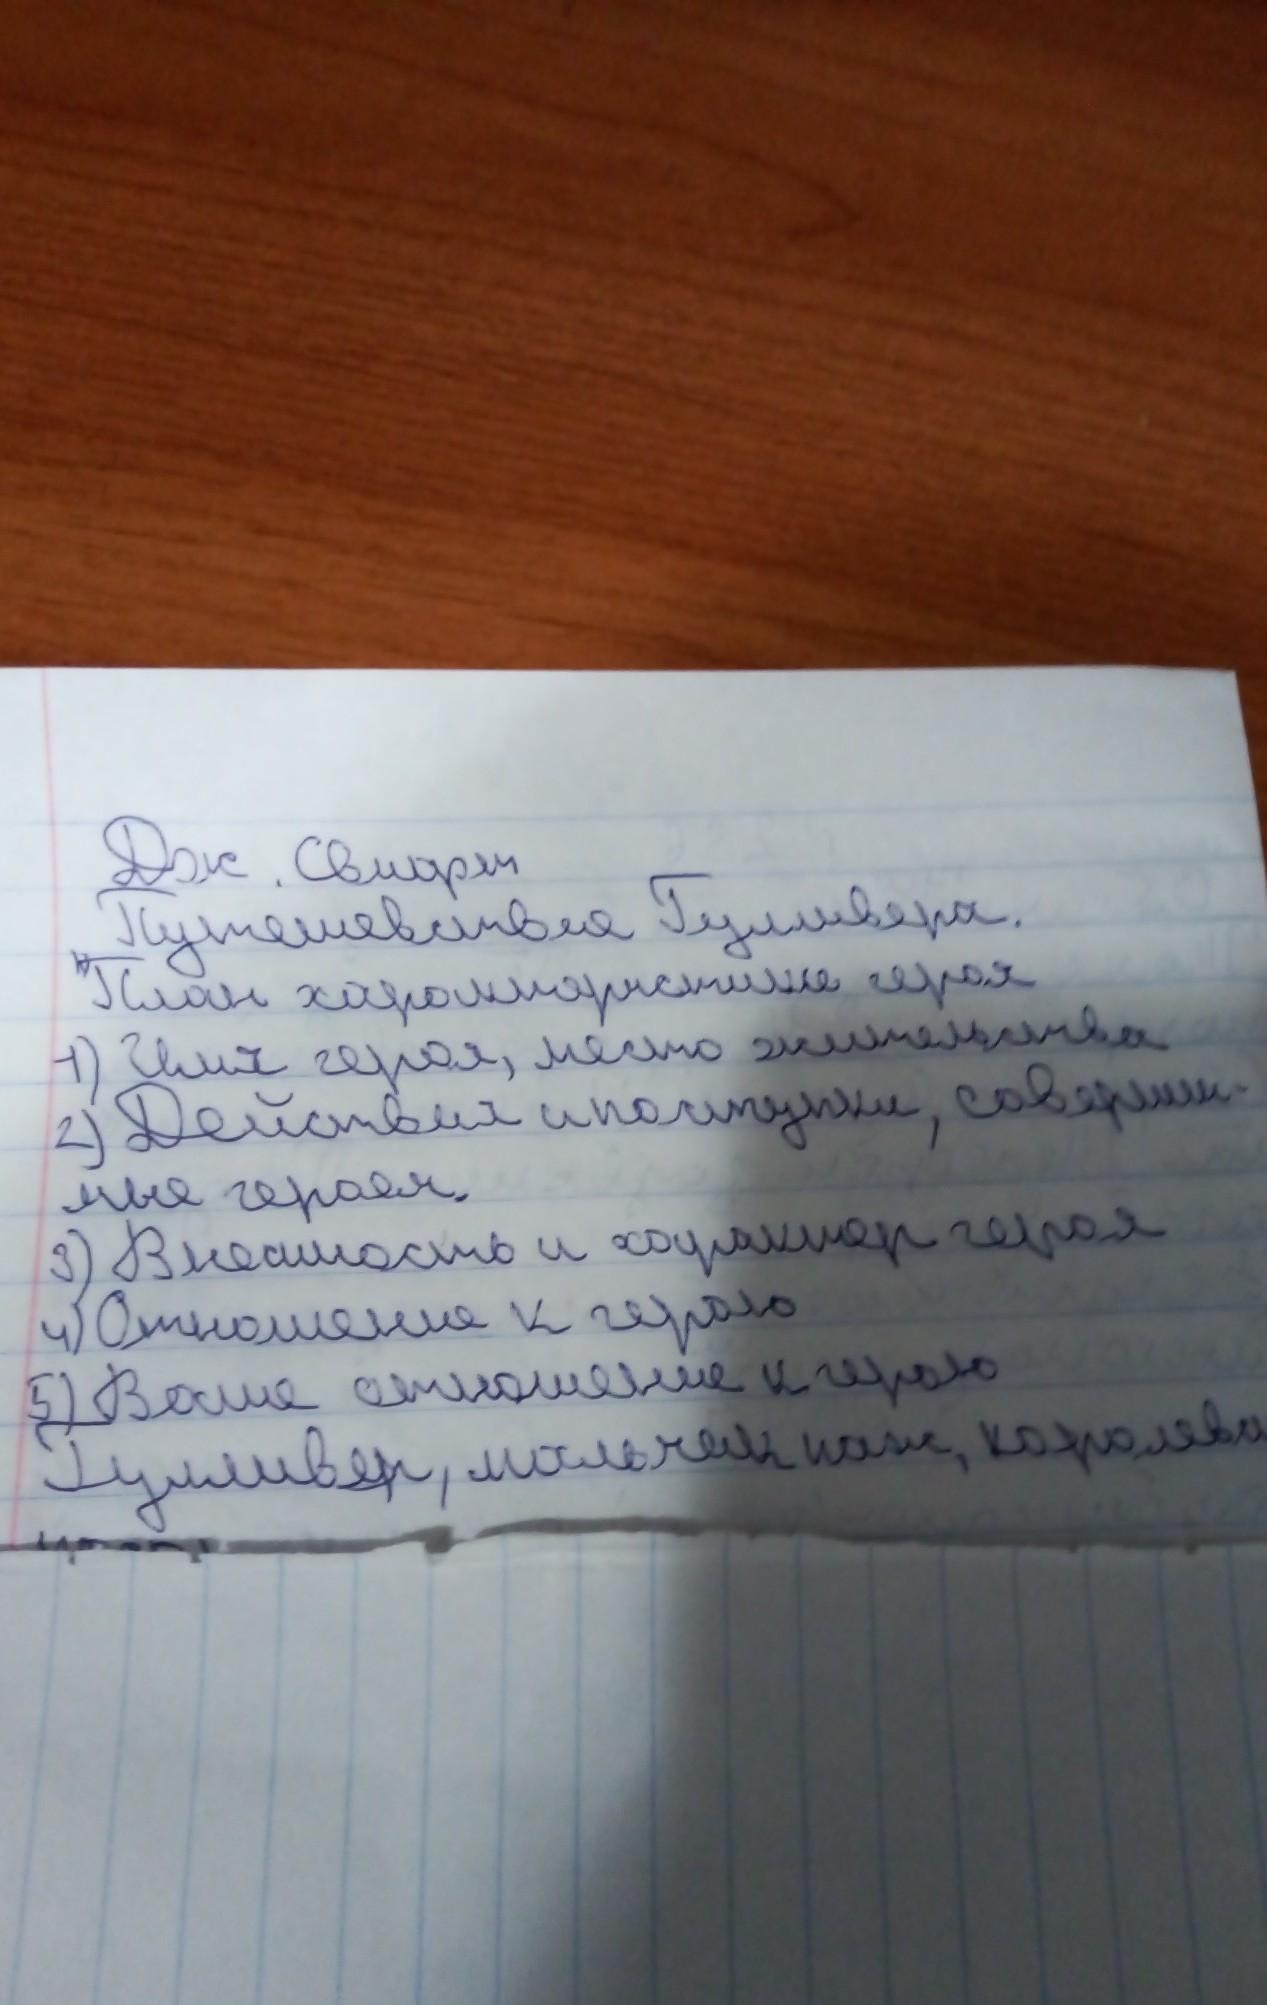 Дж. Свифт
Путешествие Гулливера.
"План характеристики героя
1) Имя героя, место жительства
2) Действия и поступки, совершен-
ные героем.
3) Внешность и характер героя
4) Отношение к герою
5) Ваше отношение к герою
Гулливер, мальчик паж, королева